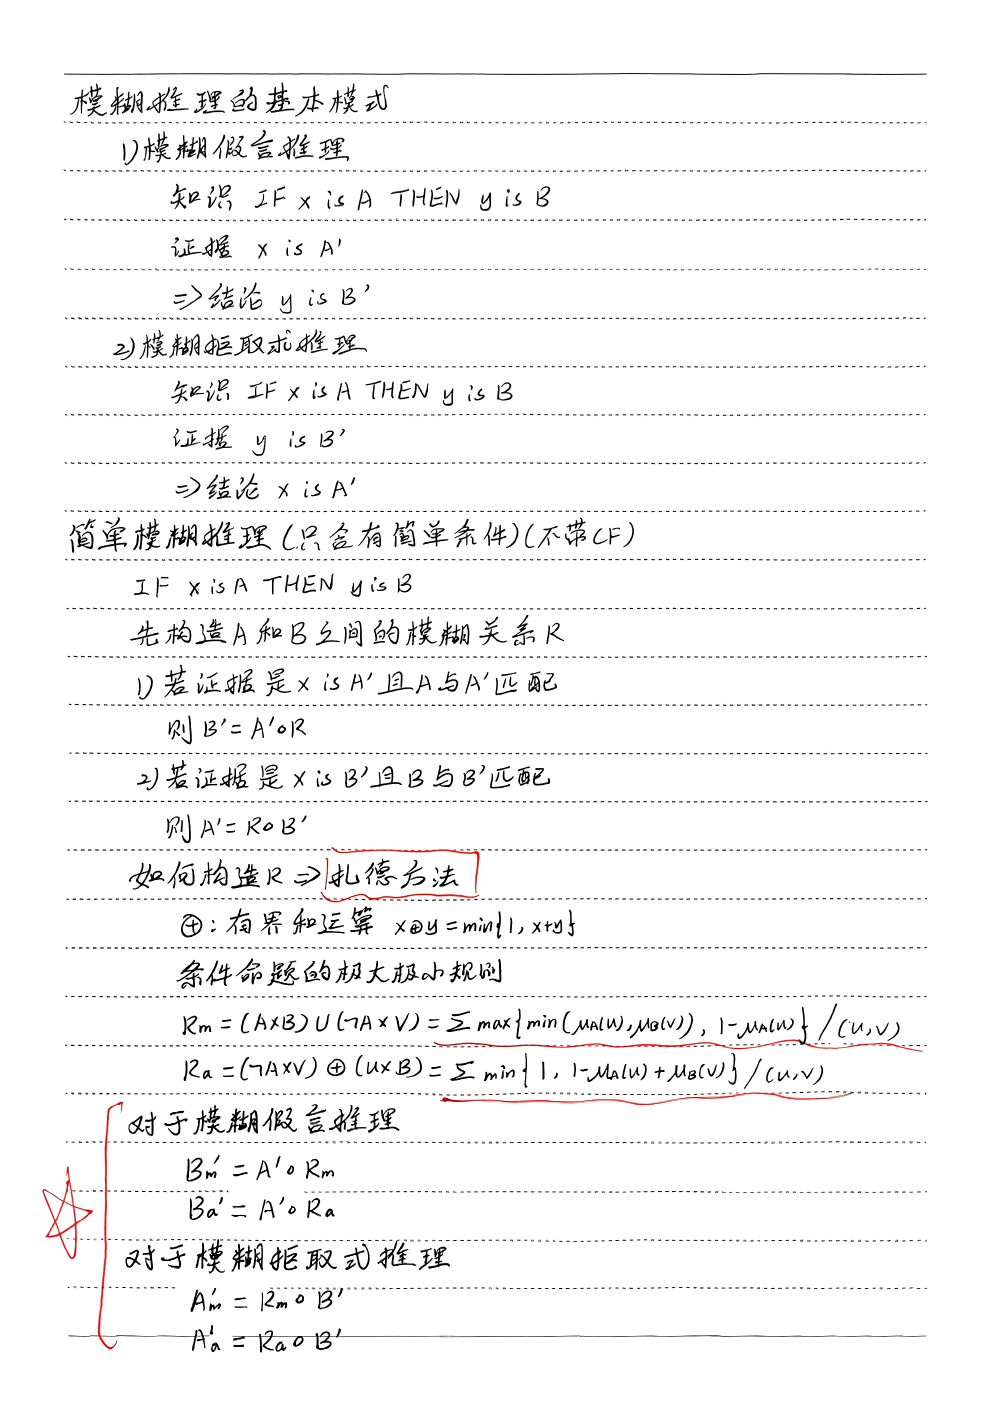 模糊推理的基本模式
1)模糊假言推理
知识 IF x is A THEN y is B
证据 x is A'
=>结论 y is B'
2)模糊拒取求推理
知识 IF x is A THEN y is B
证据 y is B'
=>结论 x is A'
简单模糊推理(只含有简单条件)(不带CF)
IF x is A THEN y is B
先构造A和B之间的模糊关系R
1)若证据是x is A'且A与A'匹配
则B'=A'∘R
2)若证据是x is B'且B与B'匹配
则A'=R∘B'
如何构造R => 扎德方法
⊕:有界和运算 x⊕y=min{1, x+y}
条件命题的极大极小规则
Rm=(A×B)∪(¬A×V)=∑max{min(μA(u),μB(v)), 1-μA(u)}/(u,v)
Ra=(¬A×V)⊕(U×B)=∑min{1, 1-μA(u)+μB(v)}/(u,v)
对于模糊假言推理
Bm'=A'∘Rm
Ba'=A'∘Ra
对于模糊拒取式推理
Am'=Rm∘B'
A'a=Ra∘B'